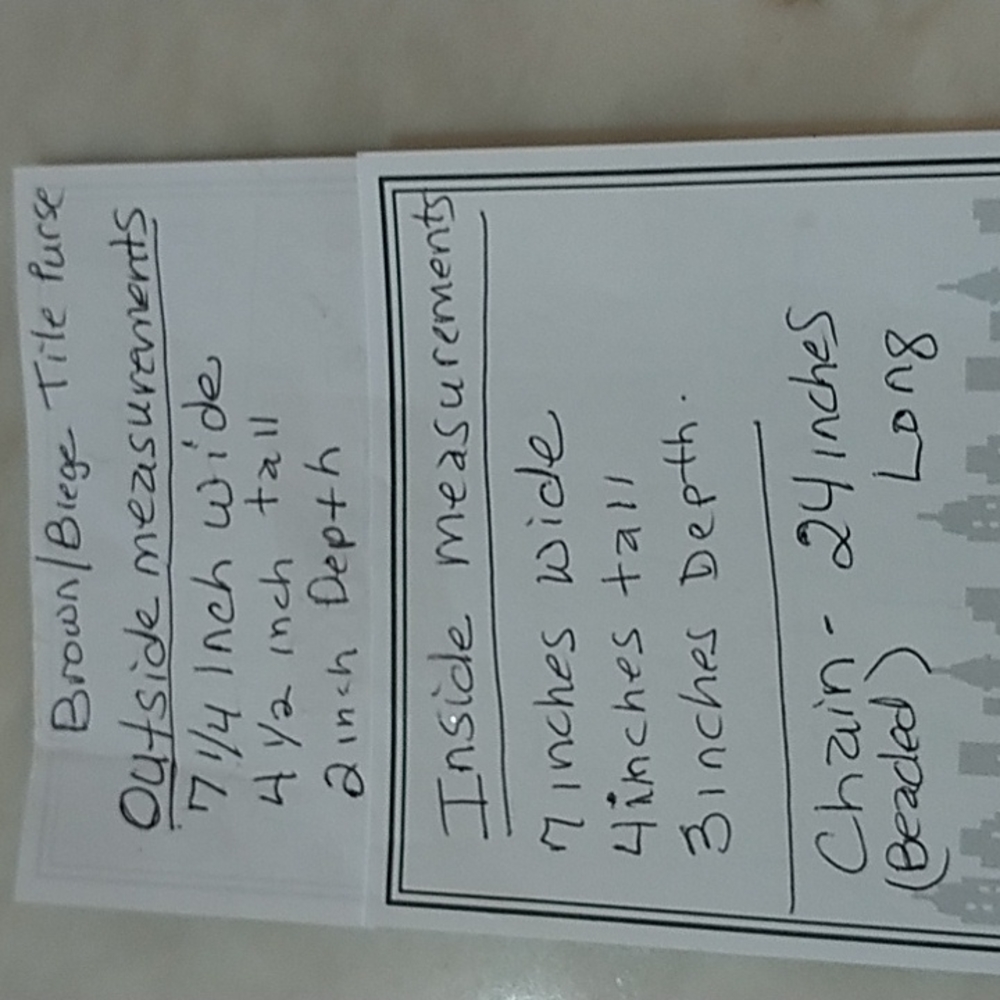 Brown/Biege Tile Purse
Outside measurements
7 1/4 Inch wide
4 1/2 inch tall
2 inch Depth
Inside measurements
7 inches wide
4 inches tall
3 inches Depth.
Chain - 24 inches
(Beaded) Long